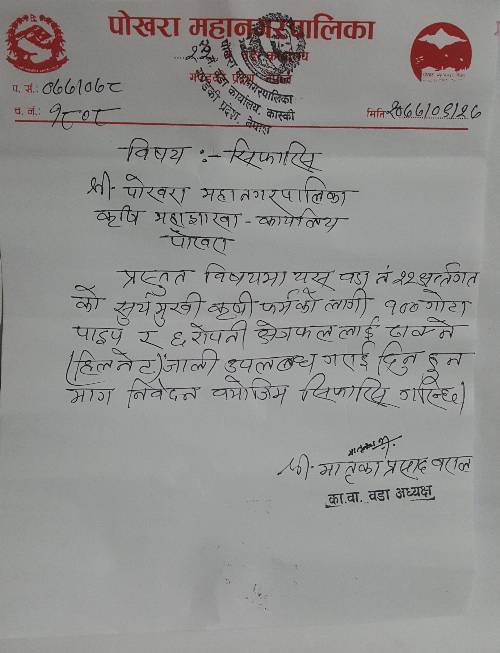 पोखरा महानगरपालिका
२२ नं वडा कार्यालय
गण्डकी प्रदेश
पोखरा महानगरपालिका
२२ नं. वडा कार्यालय, कास्की
गण्डकी प्रदेश, नेपाल
प. सं.: ०७७/०७८
च. नं.: १८०८
मिति: २०७७/०९/२८
विषय :- सिफारिस
श्री पोखरा महानगरपालिका
कृषि महाशाखा - कार्यालय
पोखरा
प्रस्तुत विषयमा यस वडा नं २२ अर्न्तगत
को सुर्यमुखी कृषी फर्मको लागी १०० गोटा
पाइप र ६ रोपनी क्षेत्रफललाई ढाक्ने
(हिलनेट) जाली उपलब्ध गराई दिनु हुन
माग निवेदन बमोजिम सिफारिस गरिन्छ।
श्री. मातृका प्रसाद बराल
का.वा. वडा अध्यक्ष